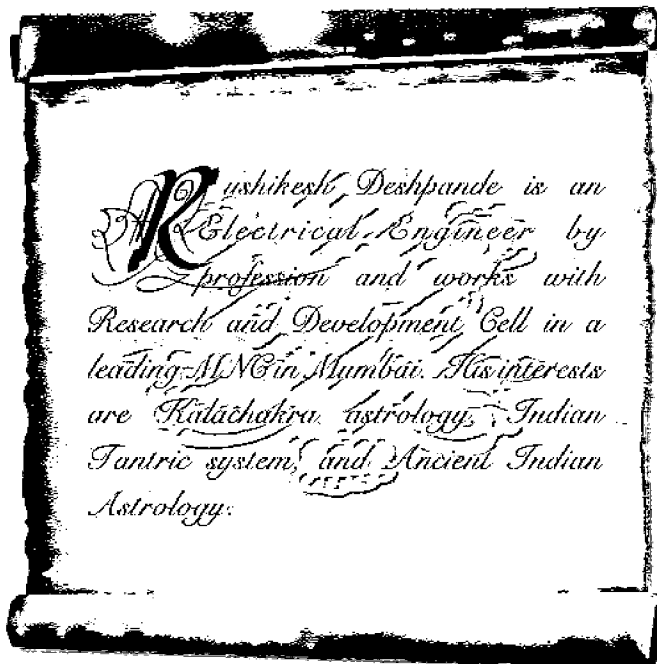 Rushikesh Deshpande is an
Electrical Engineer by
profession and works with
Research and Development Cell in a
leading MNC in Mumbai. His interests
are Kalachakra astrology, Indian
Tantric system, and Ancient Indian
Astrology.